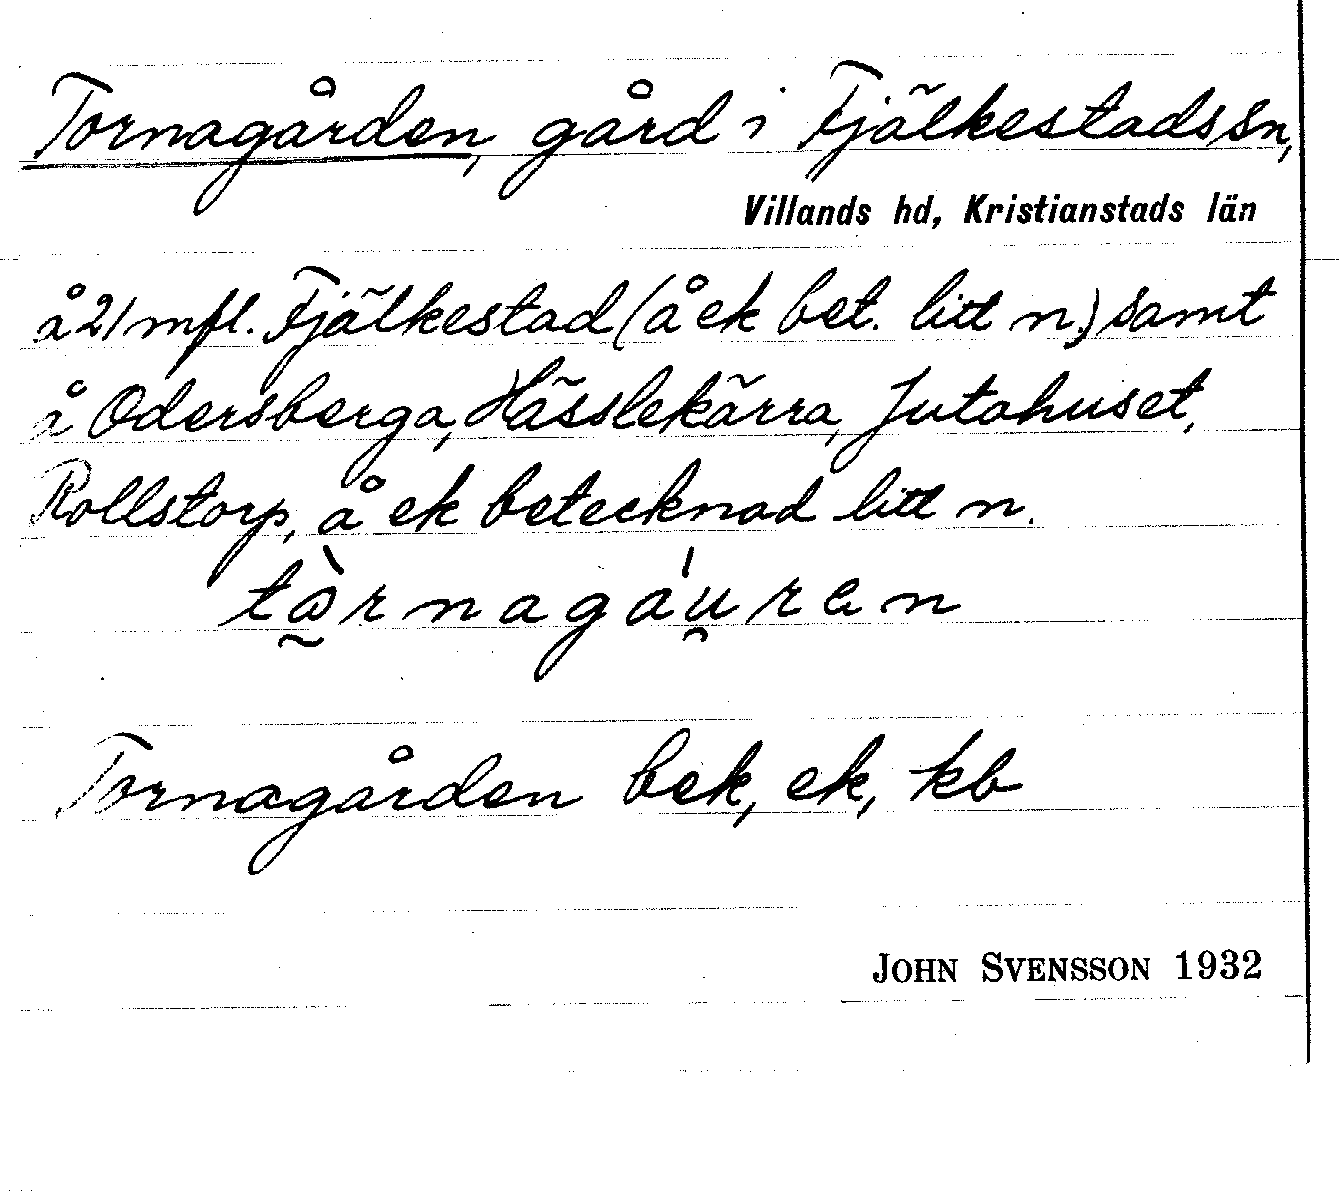 Tornagården, gård i Fjälkestads sn,
Villands hd, Kristianstads län
å 21 mfl. Fjälkestad (å ek bet. litt n.) samt
å Odersberga, Hässlekärra, Jutahuset,
Rollstorp, å ek betecknad litt n.
Tornagården bek, ek, kb
JOHN SVENSSON 1932